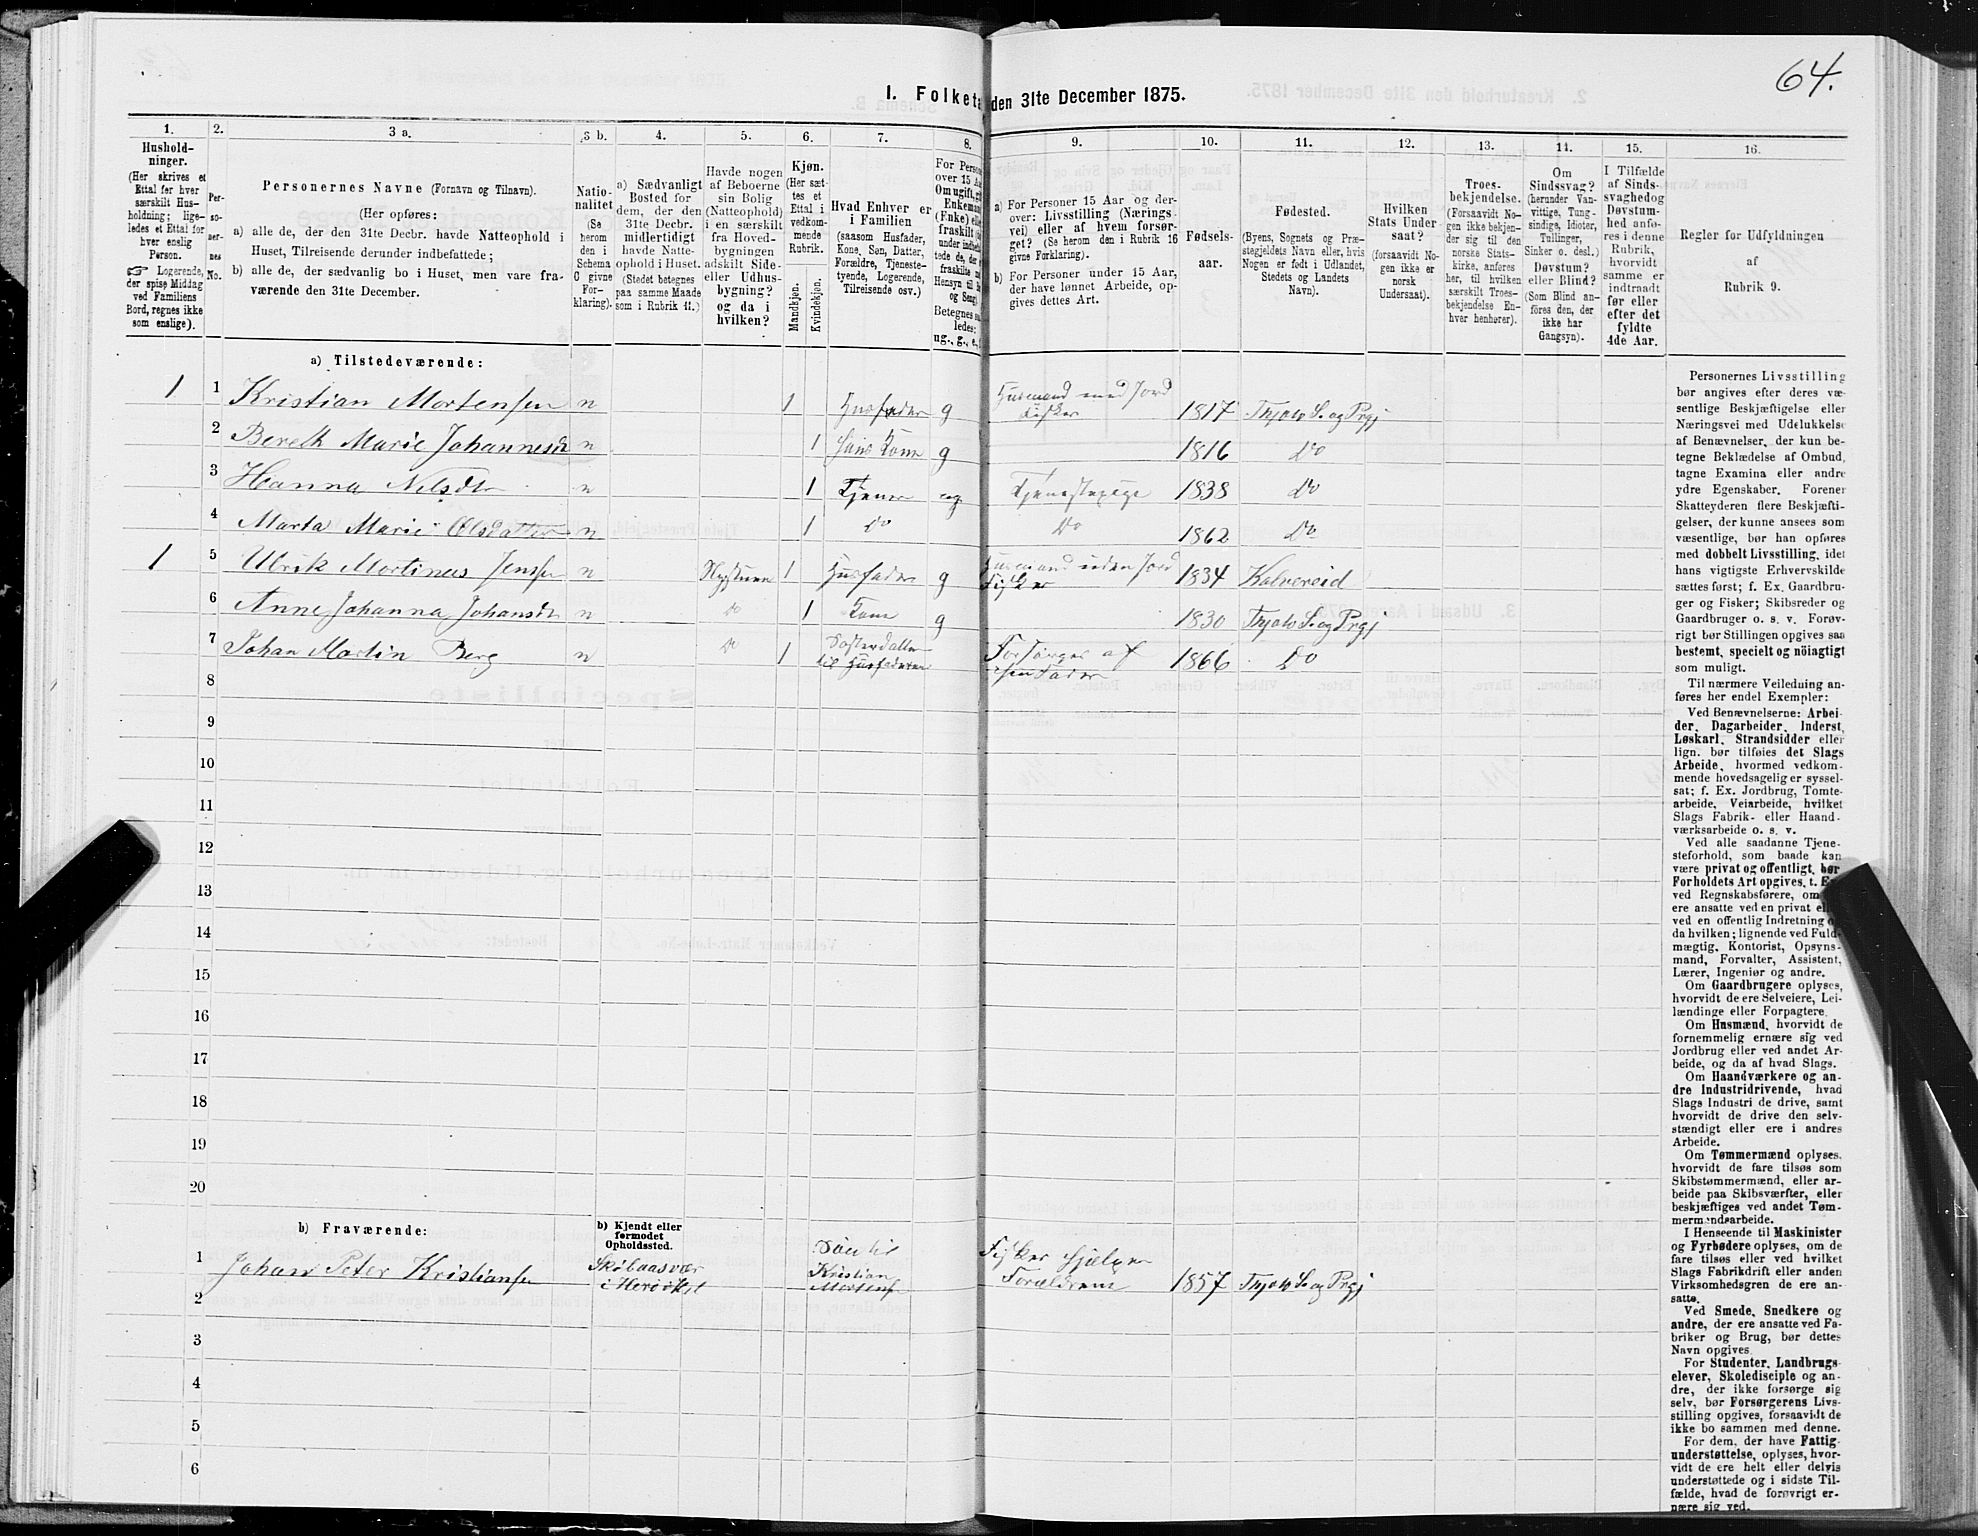 64.
I. Folketa den 31te December 1875.
1.
Hushold-
ninger.
(Her skrives et
Ettal for hver
særskilt Hus-
holdning; lige-
ledes et Ettal for
hver enslig
Person.
☞ Logerende,
der spise Middag
ved Familiens
Bord, regnes ikke
som enslige).
2.
Per-
so-
ner-
nes
No.
3 a.
Personernes Navne (Fornavn og Tilnavn).
(Her opføres:
a) alle de, der den 31te Decbr. havde Natteophold i
Huset, Tilreisende derunder indbefattede;
b) alle de, der sædvanlig bo i Huset, men vare fra-
værende den 31te December.
3 b.
Natio-
nalitet
(Se
herom
den i
Schema
O givne
For-
klaring).
4.
a) Sædvanligt
Bosted for
dem, der den
31te Decbr.
midlertidigt
havde Natte-
ophold i Huset.
(Stedet betegnes
paa samme Maade
som i Rubrik 11.)
5.
Havde nogen
af Beboerne
sin Bolig
(Natteophold)
i en særskilt
fra Hoved-
bygningen
adskilt Side-
eller Udhus-
bygning?
og da i
hvilken?
6.
Kjøn.
(Her sæt-
tes et
Ettal i
vedkom-
mende
Rubrik.
Mandkjøn.
Kvindekjøn.
7.
Hvad Enhver er
i Familien
(saasom Husfader,
Kone, Søn, Datter,
Forældre, Tjeneste-
tyende, Logerende,
Tilreisende osv.)
8.
For Person
over 15 Aa
Om ugift, gi
Enkeman
(Enke) elle
fraskilt
under indbe
tede de, der
fraskilte
Hensyn til
og Seng)
Betegnes
ledes:
ug., g., e.,
9.
a) For Personer 15 Aar og der-
over: Livsstilling (Nærings-
vei) eller af hvem forsør-
get? (Se herom den i Rubrik 16
givne Forklaring).
b) For Personer under 15 Aar,
der have lønnet Arbeide, op-
gives dettes Art.
10.
Fødsels-
aar.
11.
Fødested.
(Byens, Sognets og Præ-
stegjeldets Navn eller, hvis
Nogen er født i Udlandet,
Stedets og Landets
Navn).
12.
Hvilken
Stats Under
saat?
(forsaavidt No-
gen ikke er
norsk
Undersaat).
13.
Troes-
bekjendelse.
(Forsaavidt No-
gen ikke bekjen-
der sig til den
norske Stats-
kirke, anføres
her, til hvilken
særskilt Troes-
bekjendelse En-
hver henhører).
14.
Om
Sindssvag?
(herunder Van-
vittige, Tung-
sindige, Idioter,
Tullinger,
Sinker o. desl.)
Døvstum?
eller Blind?
(Som Blind an-
føres den, der
ikke har
Gangsyn).
15.
I Tilfælde
af Sinds-
svaghedog
Døvstum-
hed anfø-
res i denne
Rubrik,
hvorvidt
samme er
indtraadt
før eller
efter det
fyldte
4de Aar.
16.
Regler for Udfyldningen
af
Rubrik 9.
a) Tilstedeværende:
1 1 Kristian Mortensen n 1 Husfader g Husmand med Jord Fisker 1817 Tjøtø S. og Prgj
2 Bereth Marie Johannesdt n 1 hans Kone g 1816 Do
3 Hanna Nilsdtr n 1 Tjener ug Tjenestepige 1838 Do
4 Marta Marie Olsdatter n 1 Do Do 1862 Do
1 5 Ulrik Mortinus Jenssen n Nystuen 1 Husfader g Husmand uden Jord Fisker 1834 Kalvereid
6 Anne Johanna Johansdt n Do 1 Kone g 1830 Tjøtø S. og Prgj
7 Johan Martin Berg n Do 1 til Husfaderen Forsørges af sin Fader 1866 Do
8
9
10
11
12
13
14
15
16
17
18
19
20
b) Fraværende:
b) Kjendt eller
formodet
Opholdssted.
1 Johan Peter Kristiansen i Herø Søn til Kristian Mortensen Fisker hjælper Forældrene 1857 Tjøtø S. og Prgj
2
3
4
5
6
Personernes Livsstilling
bør angives efter deres væ-
sentlige Beskjæftigelse eller
Næringsvei med Udelukkelse
af Benævnelser, der kun be-
tegne Beklædelse af Ombud,
tagne Examina eller andre
ydre Egenskaber. Forener
Skatteyderen flere Beskjæfti-
gelser, der kunne ansees som
væsentlige, bør han opføres
med dobbelt Livsstilling, idet
hans vigtigste Erhvervskilde
sættes først; f. Ex. Gaardbru-
ger og Fisker; Skibsreder og
Gaardbruger o. s. v. Forøv-
rigt bør Stillingen opgives saa
bestemt, specielt og nöiagtigt
som muligt.
Til nærmere Veiledning an-
føres her endel Exempler:
Ved Benævnelserne: Arbei
der, Dagarbeider, Inderst,
Løskarl, Strandsidder eller
lign. bør tilføies det Slags
Arbeide, hvormed vedkom-
mende hovedsagelig er syssel-
sat; f. Ex. Jordbrug, Tomte-
arbeide, Veiarbeide, hvilket
Slags Fabrik- eller Haand-
værksarbeide o. s. v.
Ved alle saadanne Tjene-
steforhold, som baade kan
være privat og offentligt, bør
Forholdets Art opgives, t. Ex
ved Regnskabsførere, om
ere ansatte ved en privat el
ved en offentlig Indretning
da hvilken; lignende ved Fuld-
mægtig, Kontorist, Opsyns-
mand, Forvalter, Assistent,
Lærer, Ingeniør og andre.
Om Gaardbrugere oplyses,
hvorvidt de ere Selveiere, Lei-
lændinge eller Forpagtere.
Om Husmænd, hvorvidt de
fornemmelig ernære sig ved
Jordbrug eller ved andet Ar-
beide, og da af hvad Slags.
Om Haandværkere og an-
dre Industridrivende, hvad
Slags Industri de drive, samt
hvorvidt de drive den selv-
stændigt eller ere i andres
Arbeide.
Om Tømmermænd oplyses,
hvorvidt de fare tilsøs som
Skibstømmermænd, eller ar-
beide paa Skibsværfter, eller
beskjæftiges ved andet Tøm-
mermandsarbeide.
I Henseende til Maskinister
og Fyrbødere oplyses, om de
fare tilsøs eller ved hvilket
Slags Fabrikdrift eller anden
Virksomhedsgren de ere an-
satte.
Ved Smede, Snedkere og
andre, der ere ansatte ved Fa-
briker og Brug, bør dettes
Navn opgives.
For Studenter, Landbrugs-
elever, Skoledisciple og an-
dre, der ikke forsørge sig
selv, bør Forsørgerens Livs-
stilling opgives, forsaavidt de
ikke bo sammen med denne.
For dem, der have Fattig-
understøttelse, oplyses, hvor-
vidt de ere helt eller delvis
understøttede og i sidste Til-
fælde, hvad de forøvrigt er-
nære sig ved.